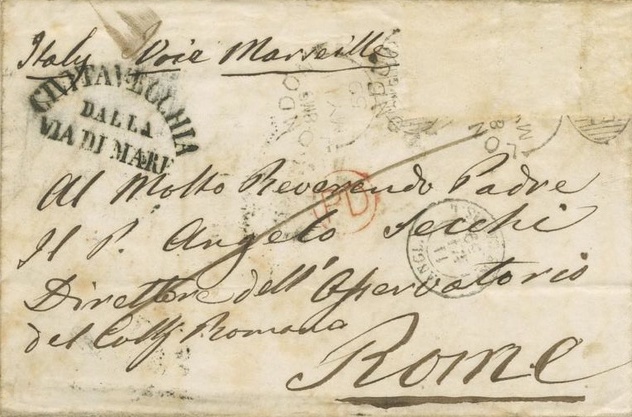 Italy Voie Marseille
CIVITAVECCHIA
DALLA
VIA DI MARE
PD
Al Molto Reverendo Padre
Il P. Angelo Secchi
Direttore dell' Osservatorio
del Coll: Romano
Rome